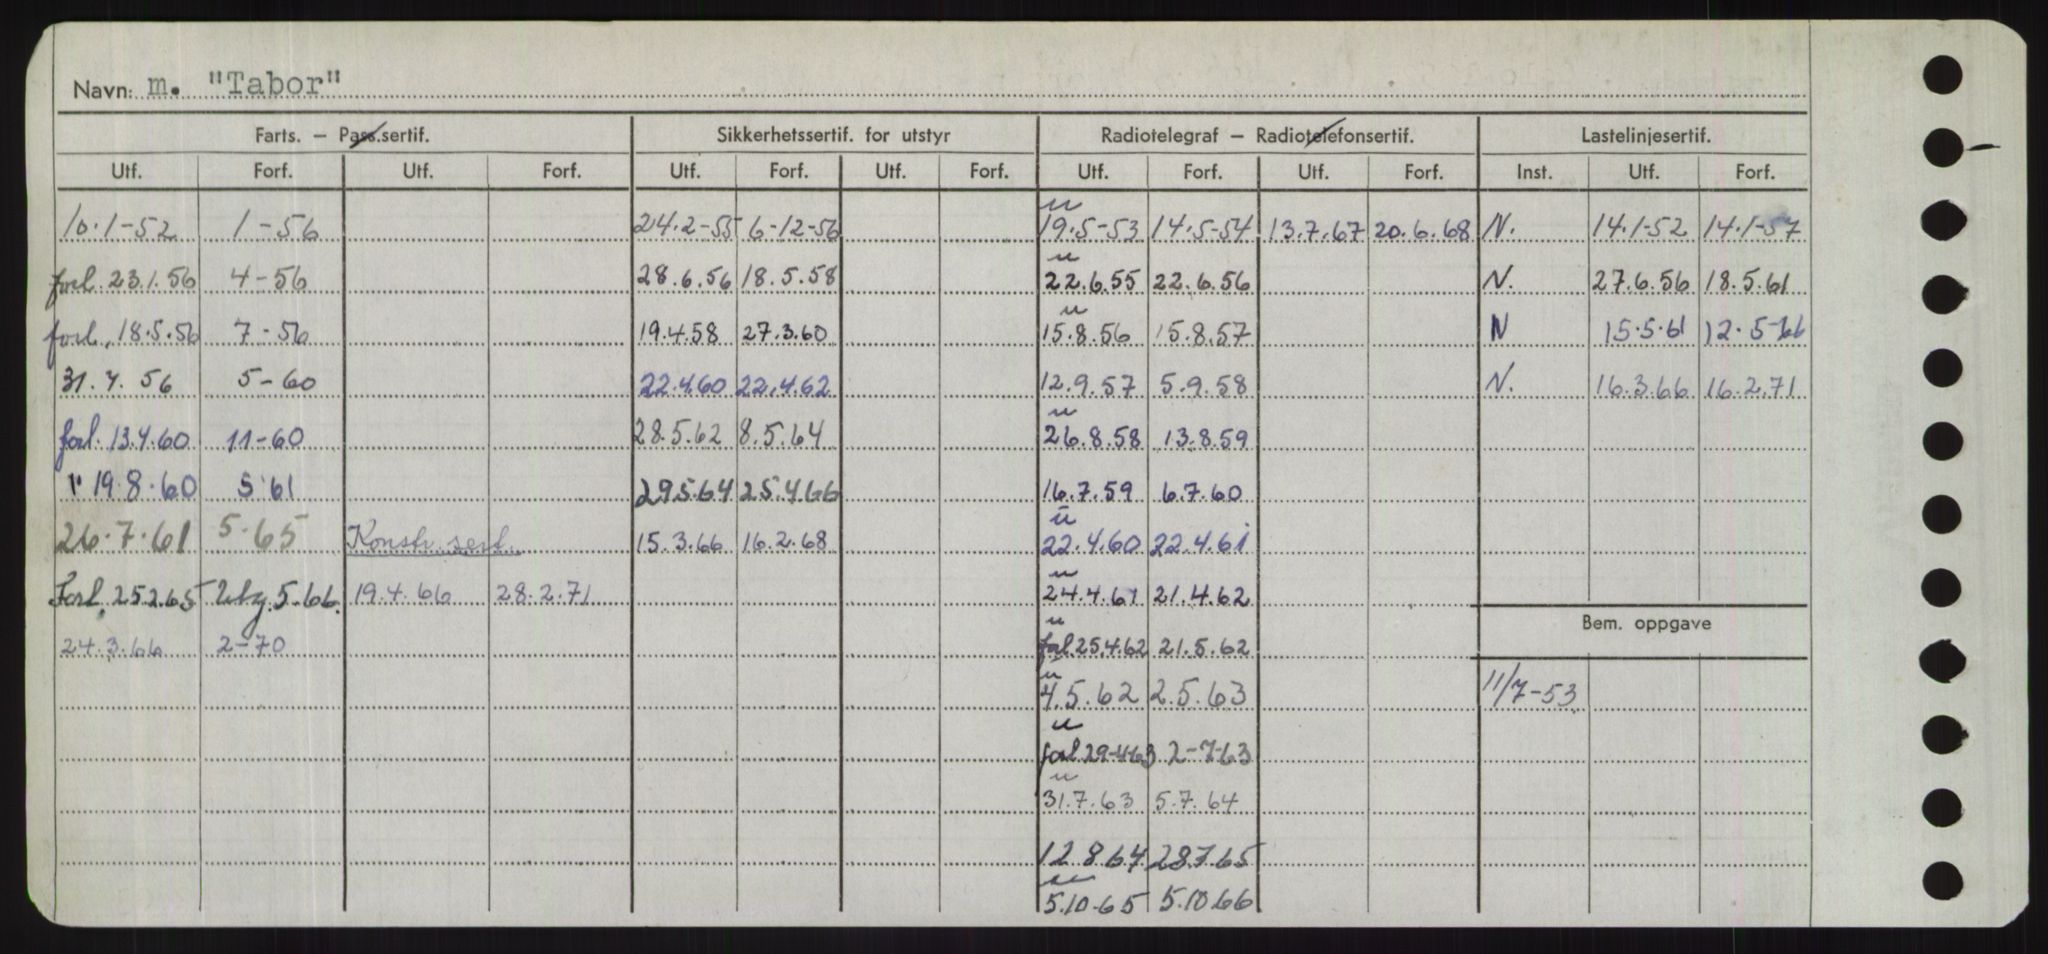 Navn: m. "Tabor"
Farts. – Pass.sertif. Sikkerhetssertif. for utstyr Radiotelegraf – Radiotelefonsertif. Lastelinjesertif.
Utf. Forf. Utf. Forf. Utf. Forf. Utf. Forf. Utf. Forf. Utf. Forf. Inst. Utf. Forf.
u
10.1-52 1-56 24.2-55 6-12-56 19.5-53 14.5-54 13.7.67 20.6.68 N. 14.1-52 14.1-57
u
forl. 23.1.56 4-56 28.6.56 18.5.58 22.6.55 22.6.56 N. 27.6.56 18.5.61
u
forl. 18.5.56 7-56 19.4.58 27.3.60 15.8.56 15.8.57 N 15.5.61 12.5-66
31.7.56 5-60 22.4.60 22.4.62 12.9.57 5.9.58 N. 16.3.66 16.2.71
u
forl. 13.4.60 11-60 28.5.62 8.5.64 26.8.58 13.8.59
" 19.8.60 5.61 29.5.64 25.4.66 16.7.59 6.7.60
u
26.7.61 5.65 Konstr. sert. 15.3.66 16.2.68 22.4.60 22.4.61
u
Forl. 25.2.65 Utg. 5.66. 19.4.66 28.2.71 24.4.61 21.4.62
u
24.3.66 2-70 forl 25.4.62 21.5.62
Bem. oppgave
u
4.5.62 2.5.63 11/7-53
u
forl 29-4-63 2-7-63
u
31.7.63 5.7.64
12.8.64 28.7.65
u
5.10.65 5.10.66